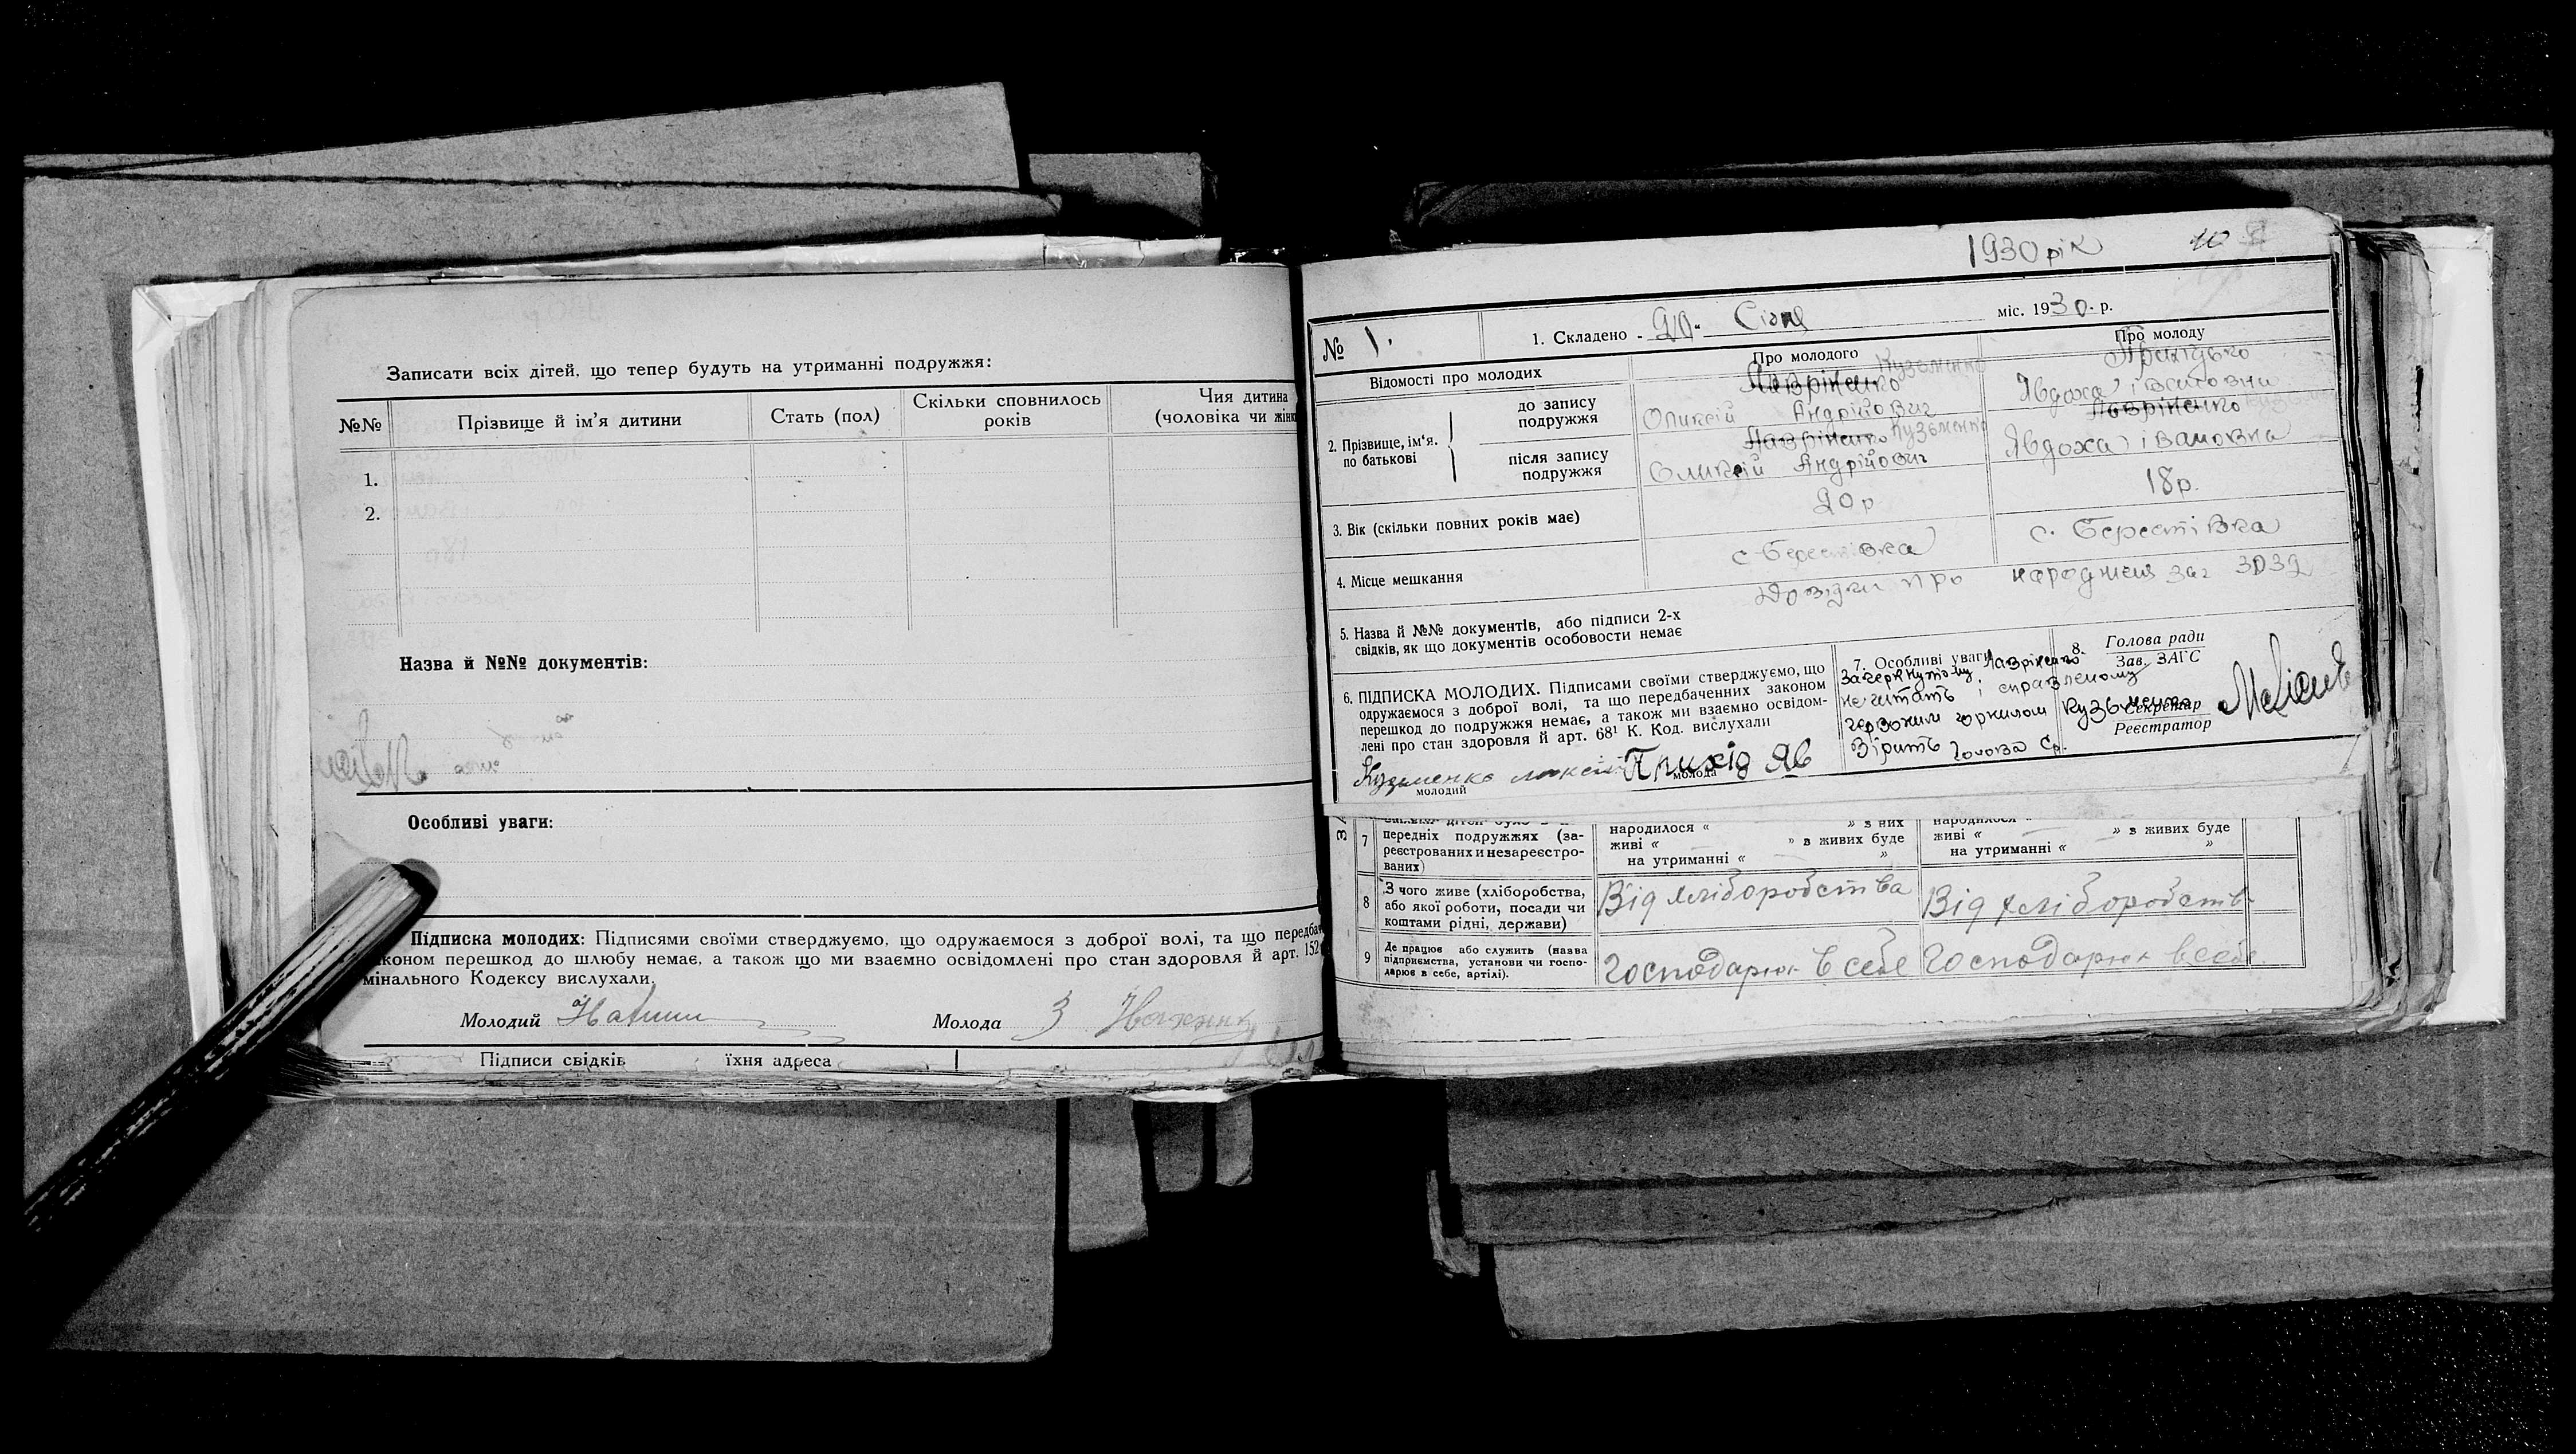 Записати всіх дітей, що тепер будуть на утриманні подружжя:
№№ Прізвище й ім'я дитини Стать (пол) Скільки сповнилось років Чия дитина (чоловіка чи жін
1.
2.
Назва й №№ документів:
Особливі уваги:
Підписка молодих: Підписями своїми стверджуємо, що одружаємося з доброї волі, та що передба
коном перешкод до шлюбу немає, а також що ми взаємно освідомлені про стан здоровля й арт. 152
мінального Кодексу вислухали.
Молодий Молода
Підписи свідків їхня адреса
1930 рік 10
№ 1. 1. Складено - 20 - Січня міс. 1930 - р.
Відомості про молодих Про молодого Про молоду
2. Прізвище, ім'я. по батькові
до запису подружжя
Лавріненко Кузьменко
Андрійович
Явдоха Івановна
після запису подружжя
Лавріненко Кузьменко
Андрійович
Лавріненко
Явдоха Івановна
3. Вік (скільки повних років має) 20 р 18 р.
4. Місце мешкання с Берестівка с. Берестівка
5. Назва й №№ документів, або підписи 2-х
свідків, як що документів особовости немає
Довідки про народження
6. ПІДПИСКА МОЛОДИХ. Підписами своїми стверджуємо, що
одружаємося з доброї волі, та що передбаченних законом
перешкод до подружжя немає, а також ми взаємно освідом-
лені про стан здоровля й арт. 68¹ К. Код. вислухали
Кузьменко
молодий
молода
7. Особливі уваги
Зачеркнутому Лавріненко
не читать і справленому
чорнилом Кузьменко
Вірить голова Ср.
8. Голова ради
Зав. ЗАГС
Секретар
Реєстратор
7 передніх подружжях (за-
реєстрованих и незареєстро-
ваних)
народилося « » з них
живі « » в живих буде
на утриманні « »
народилося «
живі « » з живих буде
на утриманні « »
8 З чого живе (хліборобства,
або якої роботи, посади чи
коштами рідні, держави)
Від хліборобства Від хліборобств
9 Де працює або служить (назва
підприємства, установи чи госпо-
дарює в себе, артілі).
Господарює в себе Господарює в себе